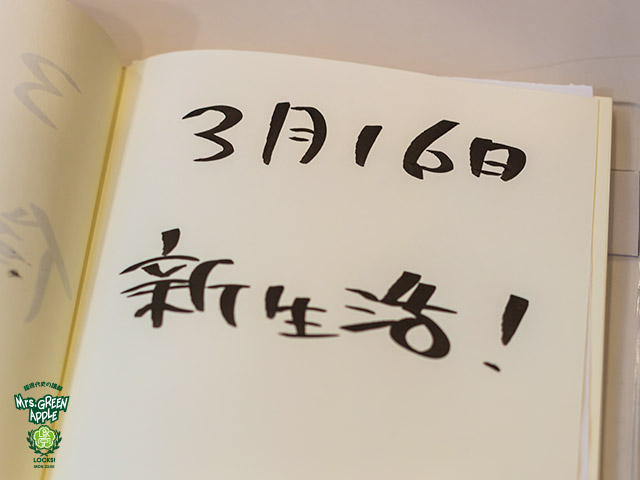 3月16日
新生活!
Mrs. GREEN
APPLE
LOCKS!